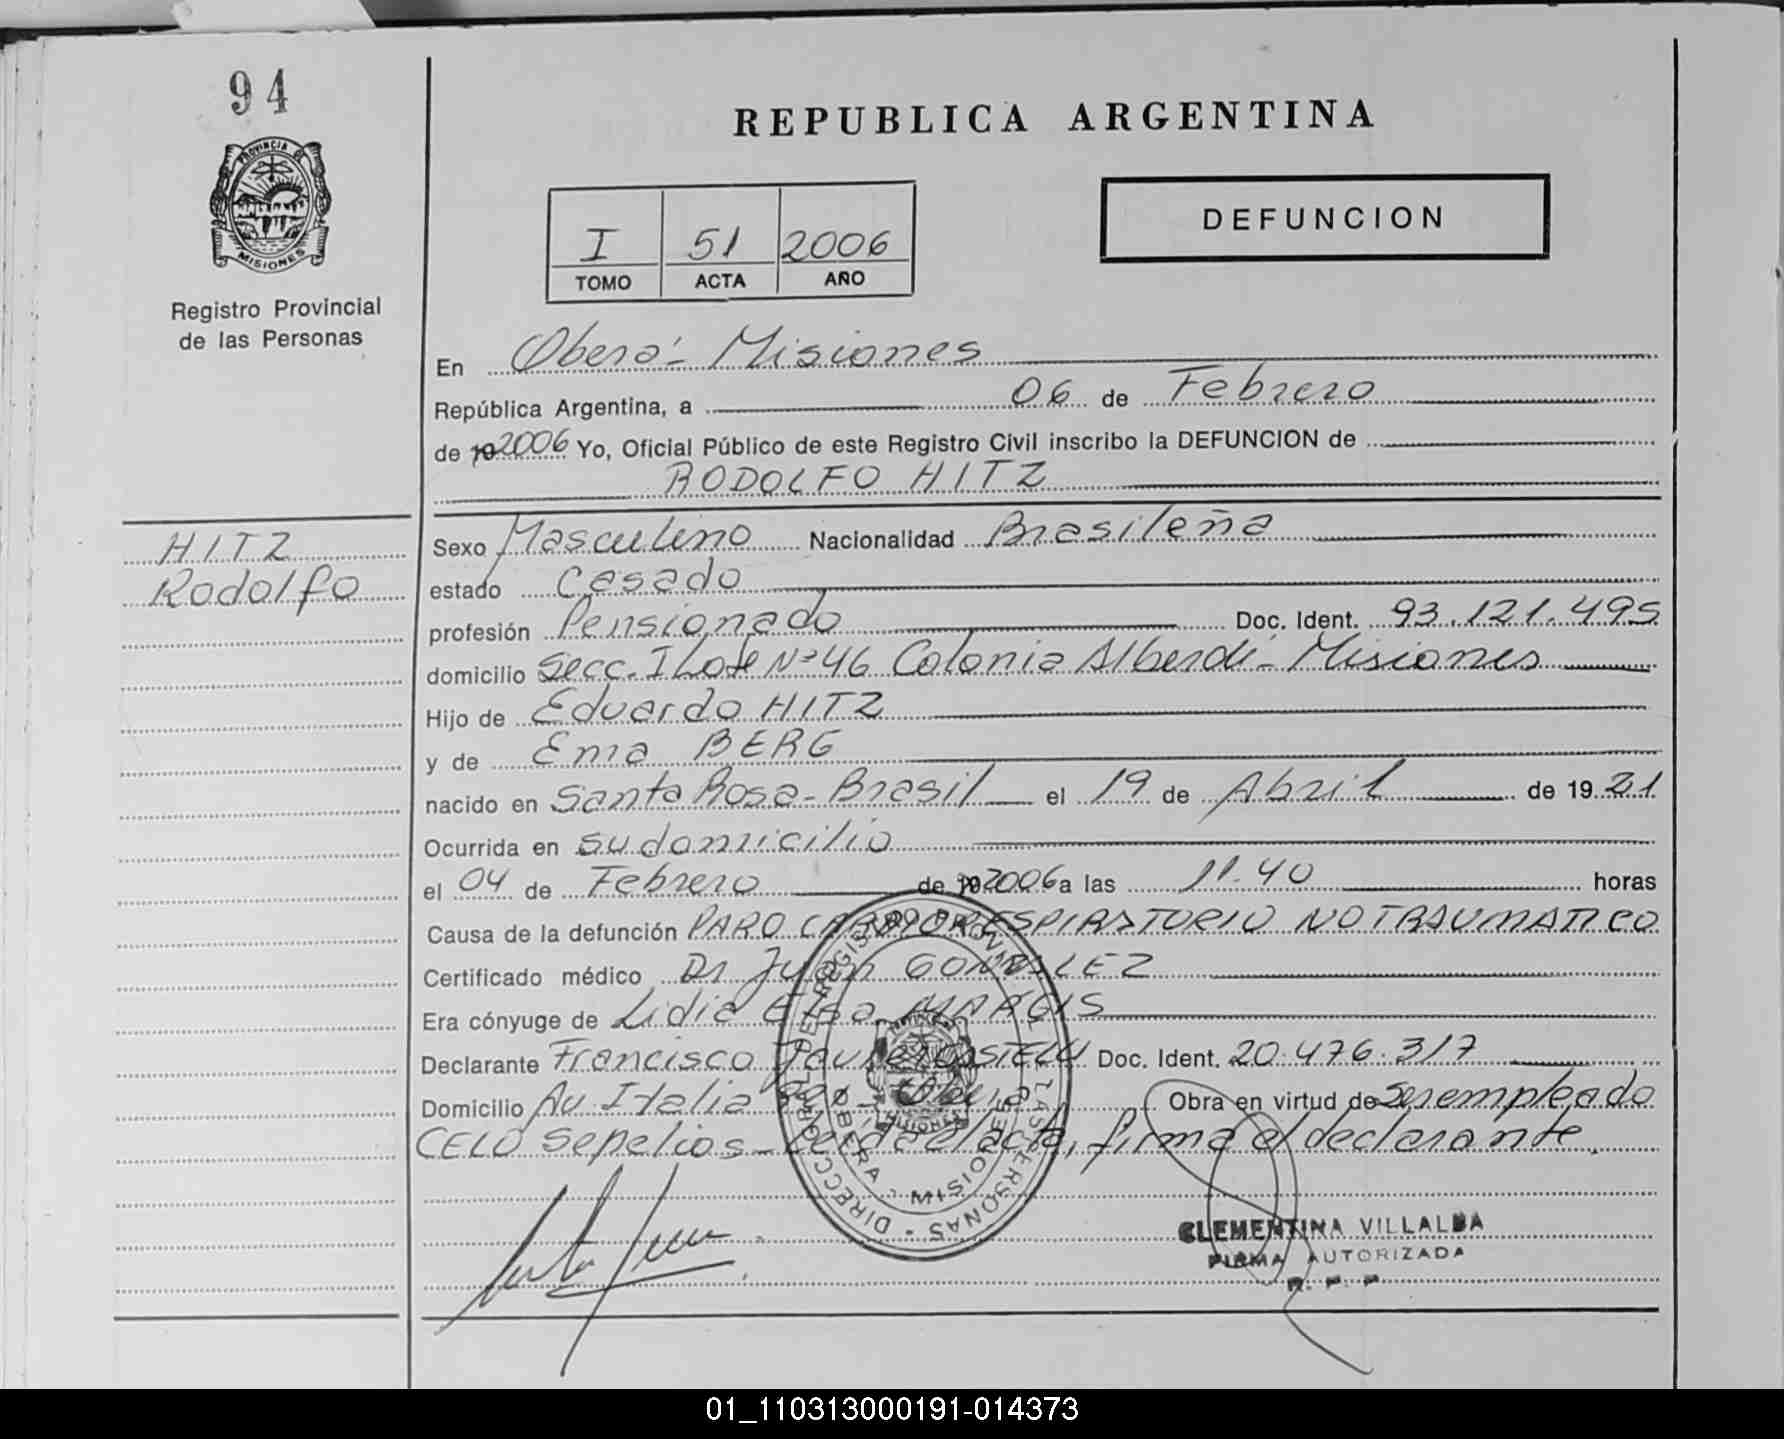 94
REPUBLICA ARGENTINA
PROVINCIA DE
MISIONES
Registro Provincial
de las Personas
I 51 2006
TOMO ACTA AÑO
DEFUNCION
En Oberá - Misiones
República Argentina, a 06 de Febrero
de 19 2006 Yo, Oficial Público de este Registro Civil inscribo la DEFUNCION de
RODOLFO HITZ
HITZ
Rodolfo
Sexo Masculino Nacionalidad Brasileña
estado Casado
profesión Pensionado Doc. Ident. 93.121.495
domicilio Secc. I Lote Nº 46 Colonia Alberdi - Misiones
Hijo de Eduardo HITZ
y de Ema BERG
nacido en Santa Rosa - Brasil el 19 de Abril de 19 21
Ocurrida en su domicilio
el 04 de Febrero de 19 2006 a las 11.40 horas
Causa de la defunción PARO CARDIORESPIRATORIO NO TRAUMATICO
Certificado médico Dr Juan GONZALEZ
Era cónyuge de Lidia Elsa MARGIS
Declarante Francisco Javier Doc. Ident. 20.476.317
Domicilio Av Italia Oberá Obra en virtud de ser empleado
CELO Sepelios - Leída el acta, firma el declarante.
DIRECCION REGISTRO PROVINCIAL DE LAS PERSONAS
OBERA - MISIONES
CLEMENTINA VILLALBA
FIRMA AUTORIZADA
R. P. P.
01_110313000191-014373